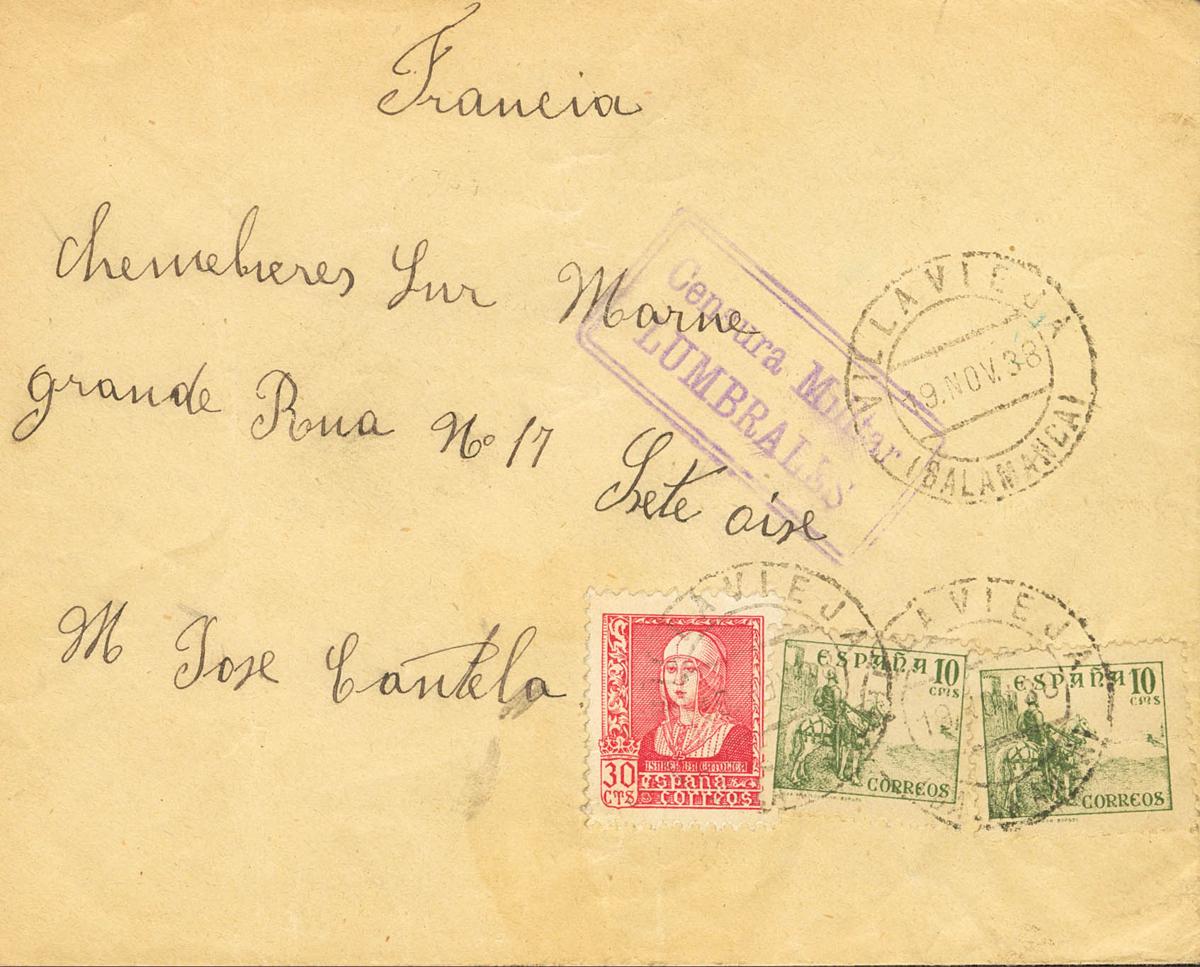 Francia
Chemebieres Sur Marne
grande Rua Nº 17
Sete oise
M Jose Cantela
Censura Militar
LUMBRALES
VILLAVIEJA
19.NOV.38
(SALAMANCA)
ISABEL LA CATOLICA
30 CTS
españa
correos
AVIEJA
ESPAÑA 10
CMS
CORREOS
AVIEJA
ESPAÑA 10
CMS
CORREOS